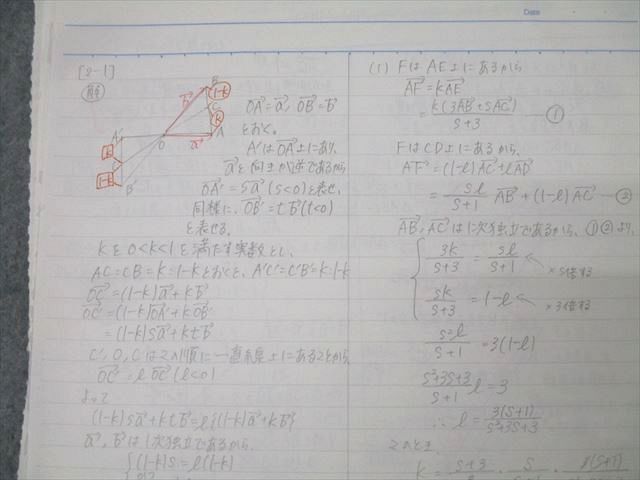 Date
[2-1]
B
1-k
C
k
A
O
A'
B'
k
1-k
b
a
OA=a, OB=b
とおく。
A'はOA上にあり、
aと向きが逆であるから
OA'=sa (s<0)と表せ、
同様に、OB'=tb(t<0)
と表せる。
kを0<k<1を満たす実数とし、
AC:CB=k:1-kとおくと、A'C':C'B'=k:1-k
OC=(1-k)a+kb
OC'=(1-k)OA'+kOB'
=(1-k)sa+ktb
C', O, Cはこの順に一直線上にあることから
OC'=lOC(l<0)
よって
(1-k)sa+ktb=l{(1-k)a+kb}
a, bは1次独立であるから、
(1-k)s=l(1-k)
(1) FはAE上にあるから
AF=kAE
=k(3AB+sAC)/s+3 ①
FはCD上にあるから、
AF=(1-l)AC+lAD
=sl/s+1 AB+(1-l)AC ②
AB, ACは1次独立であるから、①②より、
3k/s+3=sl/s+1 ×s倍する
sk/s+3=1-l ×3倍する
s²l/s+1=3(1-l)
s²+3s+3/s+1 l=3
∴l=3(s+1)/s²+3s+3
このとき、
k=s+3/3・s/s+1・